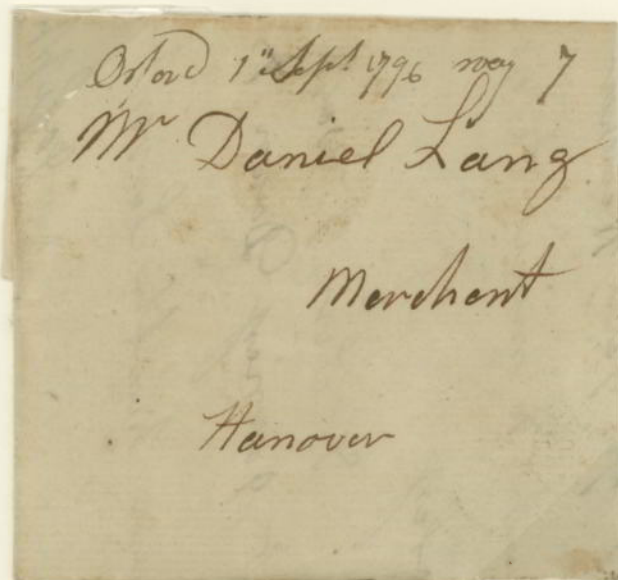 Orford 1st Sept. 1796 way 7
Mr Daniel Lang
Merchant
Hanover